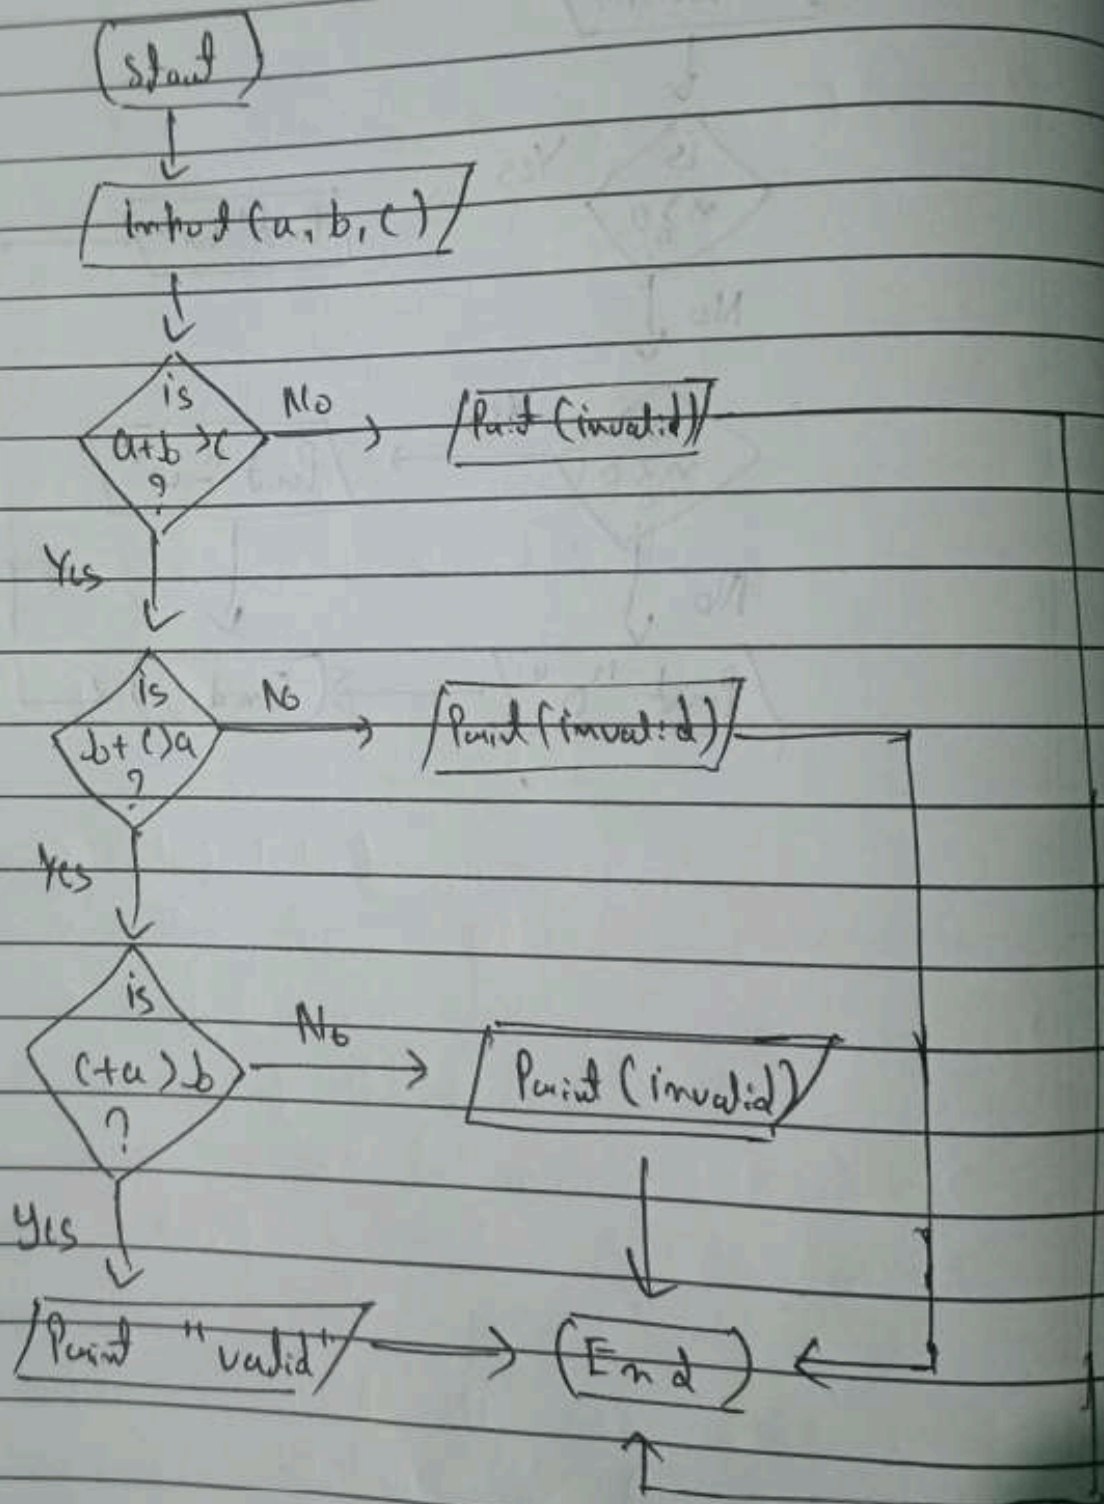 Start
Input (a, b, c)
is
a+b >c
?
No
Print (invalid)
Yes
is
b+c>a
?
No
Print (invalid)
Yes
is
c+a > b
?
No
Print (invalid)
Yes
Print "valid"
End